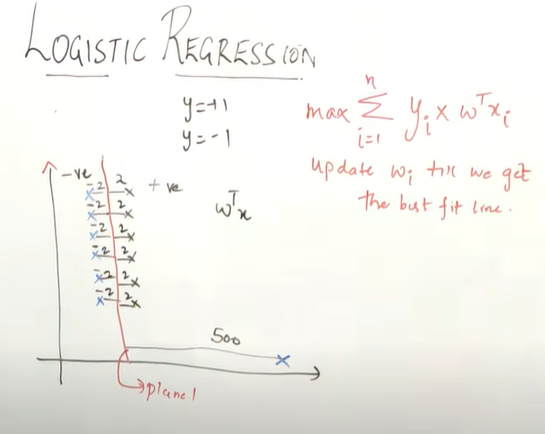 LOGISTIC REGRESSION
y=+1
y=-1
n
max Σ yi x wTxi
i=1
update wi till we get
the best fit line.
-ve
+ve
wTx
-2 2
-2 2
-2 2
-2 2
-2 2
-2 2
500
plane1